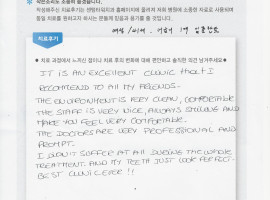 작성해주신 치료후기는 병원홈페이지에 올려져 저희 병원에 소중한 자료로 사용되며
치료후기
치료 과정에서 느끼신 점이나 치료 후의 변화에 대해 편안하고 솔직한 의견 남겨주세요
IT IS AN EXCELLENT CLINIC that I
RECOMMEND TO ALL MY FRIENDS.
THE ENVIRONMENT IS VERY CLEAN, COMFORTABLE
THE STAFF IS VERY NICE, ALWAYS SMILING AND
MAKE YOU FEEL VERY COMFORTABLE.
THE DOCTORS ARE VERY PROFESSIONAL AND
PROMPT.
I DIDN'T SUFFER AT ALL DURING THE WHOLE
TREATMENT. AND MY TEETH JUST LOOK PERFECT-
BEST CLINIC EVER!!